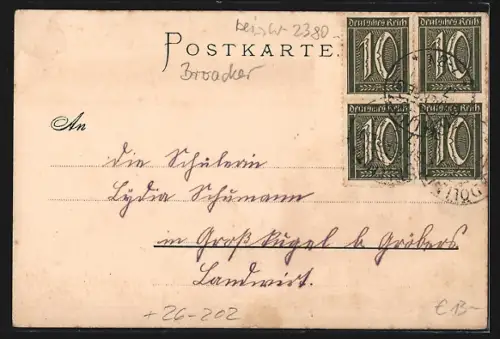 2380-
POSTKARTE
Broacker
Deutsches Reich Deutsches Reich
10 10
Deutsches Reich Deutsches Reich
10 10
An
die Schülerin
Lydia Schumann
in Großkugel b Gröbers
Landwirt.
+26-202
€ 13-